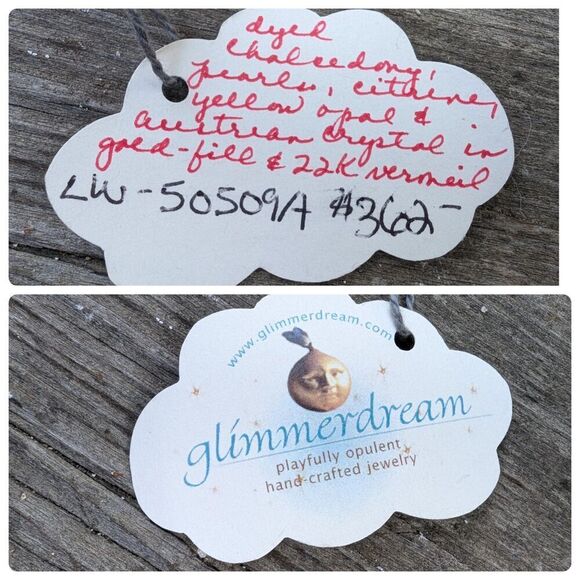 dyed
chalcedony,
pearls, citrine,
yellow opal &
austrian crystal in
gold-fill & 22K vermeil
LW-50509A $362-
www.glimmerdream.com
glimmerdream
playfully opulent
hand-crafted jewelry